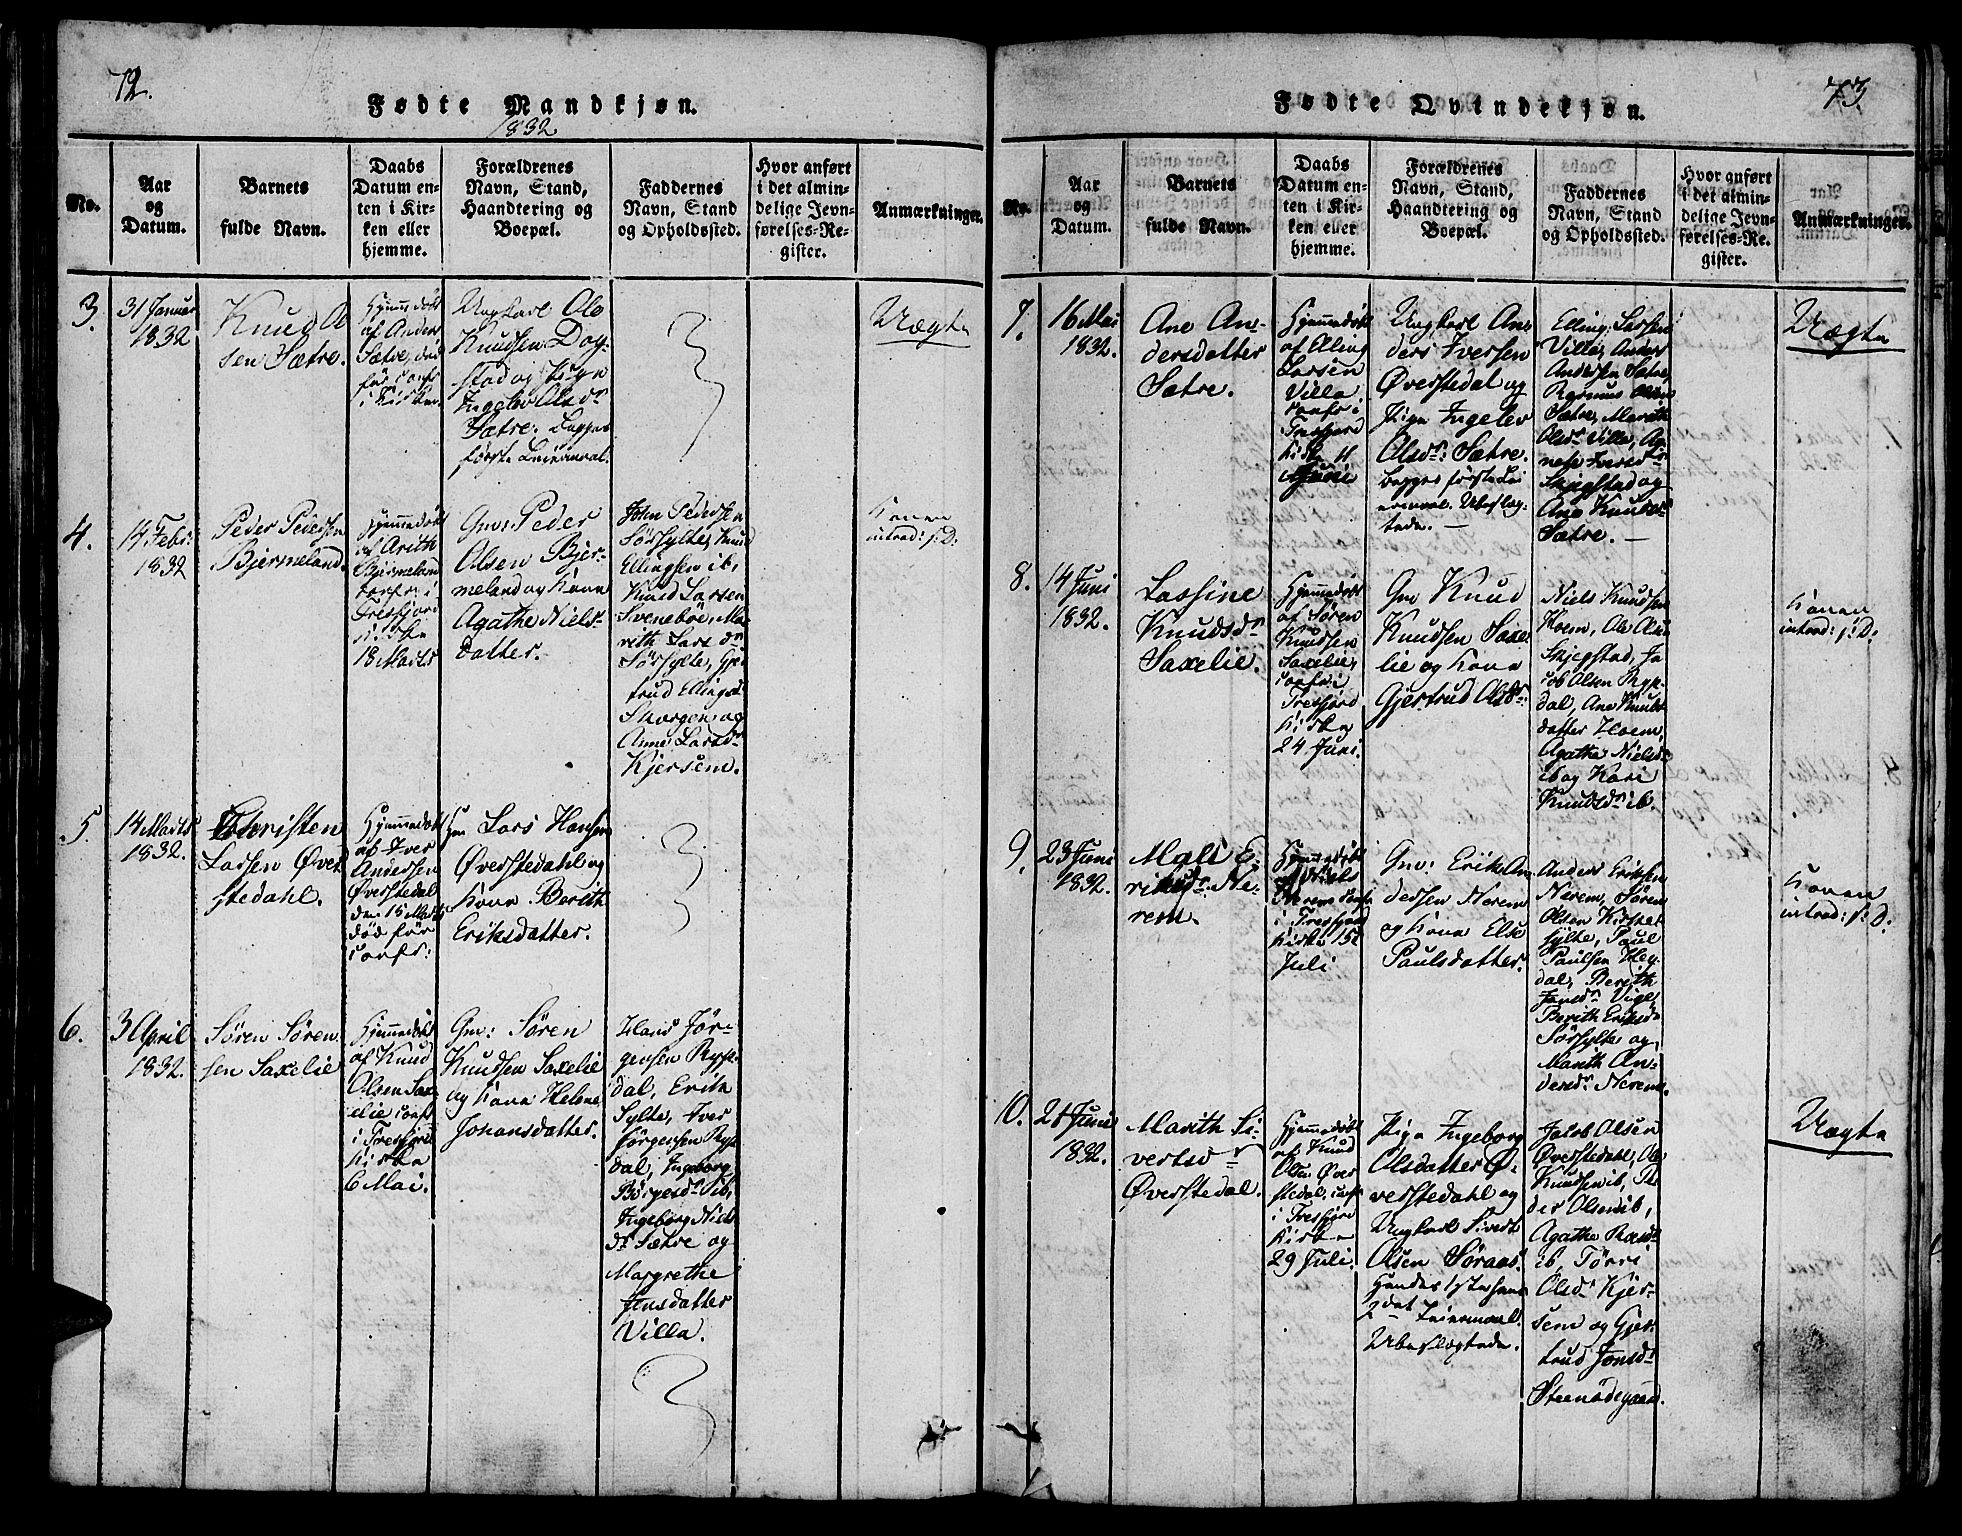 72.
Fødte Mandkjøn.
1832
No.
Aar
og
Datum.
Barnets
fulde Navn.
Daabs
Datum en-
ten i Kir-
ken eller
hjemme.
Forældrenes
Navn, Stand,
Haandtering og
Boepæl.
Faddernes
Navn, Stand
og Opholdssted.
Hvor anført
i det almin-
delige Jevn-
førelses-Re-
gister.
Anmærkninger.
3.
31 Januar
1832
Knud Ol
sen Sætre.
Hjemmedøbt
af Anders
Sætre, død
før conf:
i Kirken.
Ungkarl Ole
Knudsen Dog-
stad og Pige
Ingelev Olsdr
Sætre. Begges
første Leiermaal.
Uægte
4.
14 Febr:
1832
Peder Pedersen
Bjermeland.
Hjemmedøbt
af Arith
Bjermeland
conf: i
Tresfjord
Kirke
18 Marts
Gm: Peder
Olsen Bjer-
meland og Kone
Agathe Niels-
datter.
John Pedersen
Sørsylte, Knud
Ellingsen ib,
Knud Larsen
Svenebøe, Ma-
rith Lars dr
Sørsylte, Gjer
trud Ellingsd
Skorgen og
Anne Larsdr
Kjersem.
Konen
introd: s: D:
5
14 Marts
1832.
Christen
Larsen Øver
stedahl.
Hjemmedøbt
af Iver
Andersen
Øverstedal
den 15 Marts
død før
conf:
Gm Lars Hansen
Øverstedahl og
Kone Berith
Eriksdatter.
6.
3 April
1832.
Søren Søren
sen Saxelie
Hjemmedøbt
af Knud
Olsen Sax-
elie conf
i Tresfjord
Kirke
6 Mai.
Gm: Søren
Knudsen Saxelie
og Kone Helene
Johansdatter.
Hans Jør-
gensen Ryp-
dal, Erik
Sylte, Iver
Jørgensen Ryp
dal, Ingeborg
Børgesdr ib,
Ingeborg Niels
dr Sætre og
Margrethe
Jensdatter
Villa.
73.
Fødte Qvindekjøn.
No.
Aar
og
Datum.
Barnets
fulde Navn.
Daabs
Datum en-
ten i Kir-
ken eller
hjemme.
Forældrenes
Navn, Stand,
Haandtering og
Boepæl.
Faddernes
Navn, Stand
og Opholdssted.
Hvor anført
i det almin-
delige Jevn-
førelses-Re-
gister.
Anmærkninger.
7.
16 Mai
1832.
Ane An-
dersdatter
Sætre.
Hjemmedøbt
af Elling
Larsen
Villa
conf: i
Tresfjord
Kirke 11
Juni
Ungkarl An-
ders Iversen
Øverstedal og
Pige Ingelev
Olsdr: Sætre.
begges første Lei
ermaal. Ubeslag-
tede. —
Elling Larsen
Villa, Anders
Andersen Sætre,
Rasmus Olsen
Sætre, Marith
Olsdr Villa, Ag-
nese Iversdr
Skjegstad og
Ane Knudsdr
Sætre. —
Uægte
8.
14 Juni
1832.
Lassine
Knudsdr
Saxelie.
Hjemmedøbt
af Søren
Knudsen
Saxelie,
conf: i
Tresfjord
Kirke
24 Juni.
Gm Knud
Knudsen Saxe-
lie og Kone
Gjertrud Olsdr:
Niels Knudsen
Hoem, Ole Olsen
Skjegstad, Ja
cob Olsen Ryp-
dal, Ane Knuds
datter Hoem,
Agathe Nielsdr
ib og Kari
Knudsdr ib.
Konen
introd: s: D:
9.
23 Juni
1832.
Mali E-
riksdr Ne-
rem.
Hjemmedøbt
af Niels
Nerem conf
i Tresfjord
Kirke 15de
Juli
Gm: Erik An
dersen Nerem
og Kone Else
Paulsdatter.
Anders Eriksen
Nerem, Søren
Olsen Kirke
sylte, Paul
Paulsen Hey-
dal, Berith
Jonsdr Vige,
Berith Eriksd
Sørsylte og
Marith An-
dersdr Nerem.
Konen
introd: s: D:
10.
21 Juni
1832.
Marith Si-
vertsdr
Øverstedal.
Hjemmedøbt
af Knud
Olsen Øver
stedal, conf
i Tresfjord
Kirke
29 Juli.
Pige Ingeborg
Olsdatter Ø-
verstedahl og
Ungkarl Sivert
Olsen Søraas.
Hendes 1ste hans
2det Leiermaal.
Ubeslægtede.
Jakob Olsen
Øverstedahl, Ole
Knudsen ib, Pe
der Olsen ib,
Agathe Roesdr
ib, Tørri
Olsdr Kjer-
sem og Gjer
trud Jonsdr
Steenødegaard.
Uægte